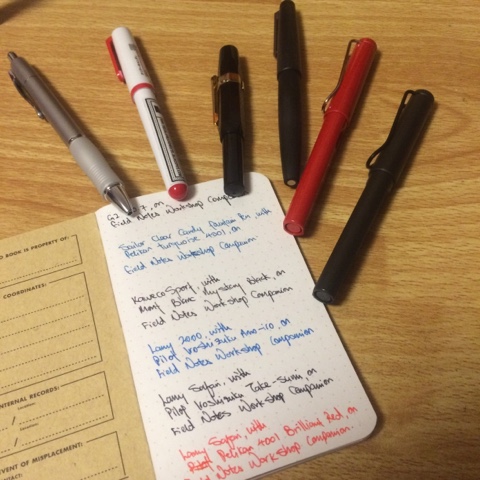 BOOK IS PROPERTY OF:
COORDINATES:
NTERNAL RECORDS:
VENT OF MISPLACEMENT:
G2 7, on
Field Notes Workshop Compan
Sailor Clear Candy Fountain Pen, with
Pelikan Turquoise 4001, on
Field Notes Workshop Companion
Kaweco Sport, with
Mont Blanc Mystery Black, on
Field Notes Workshop Companion
Lamy 2000, with
Pilot Iroshizuku Ama-iro, on
Field Notes Workshop Companion
Lamy Safari, with
Pilot Iroshizuku Take-Sumi, on
Field Notes Workshop Companion
Lamy Safari, with
Pelikan 4001 Brilliant Red, on
Field Notes Workshop Companion.